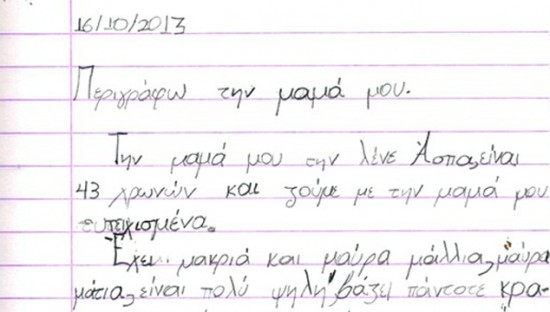 16/10/2013
Περιγράφω την μαμά μου.
Την μαμά μου την λένε Άσπα, είναι
43 χρωνών και ζούμε με την μαμά μου
ευτειχισμένα.
Έχει μακριά και μαύρα μάλλια, μαύρα
μάτια, είναι πολύ ψηλή, βάζει πάντοτε κρα-